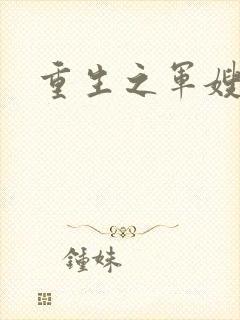 重生之军嫂
鍾妹